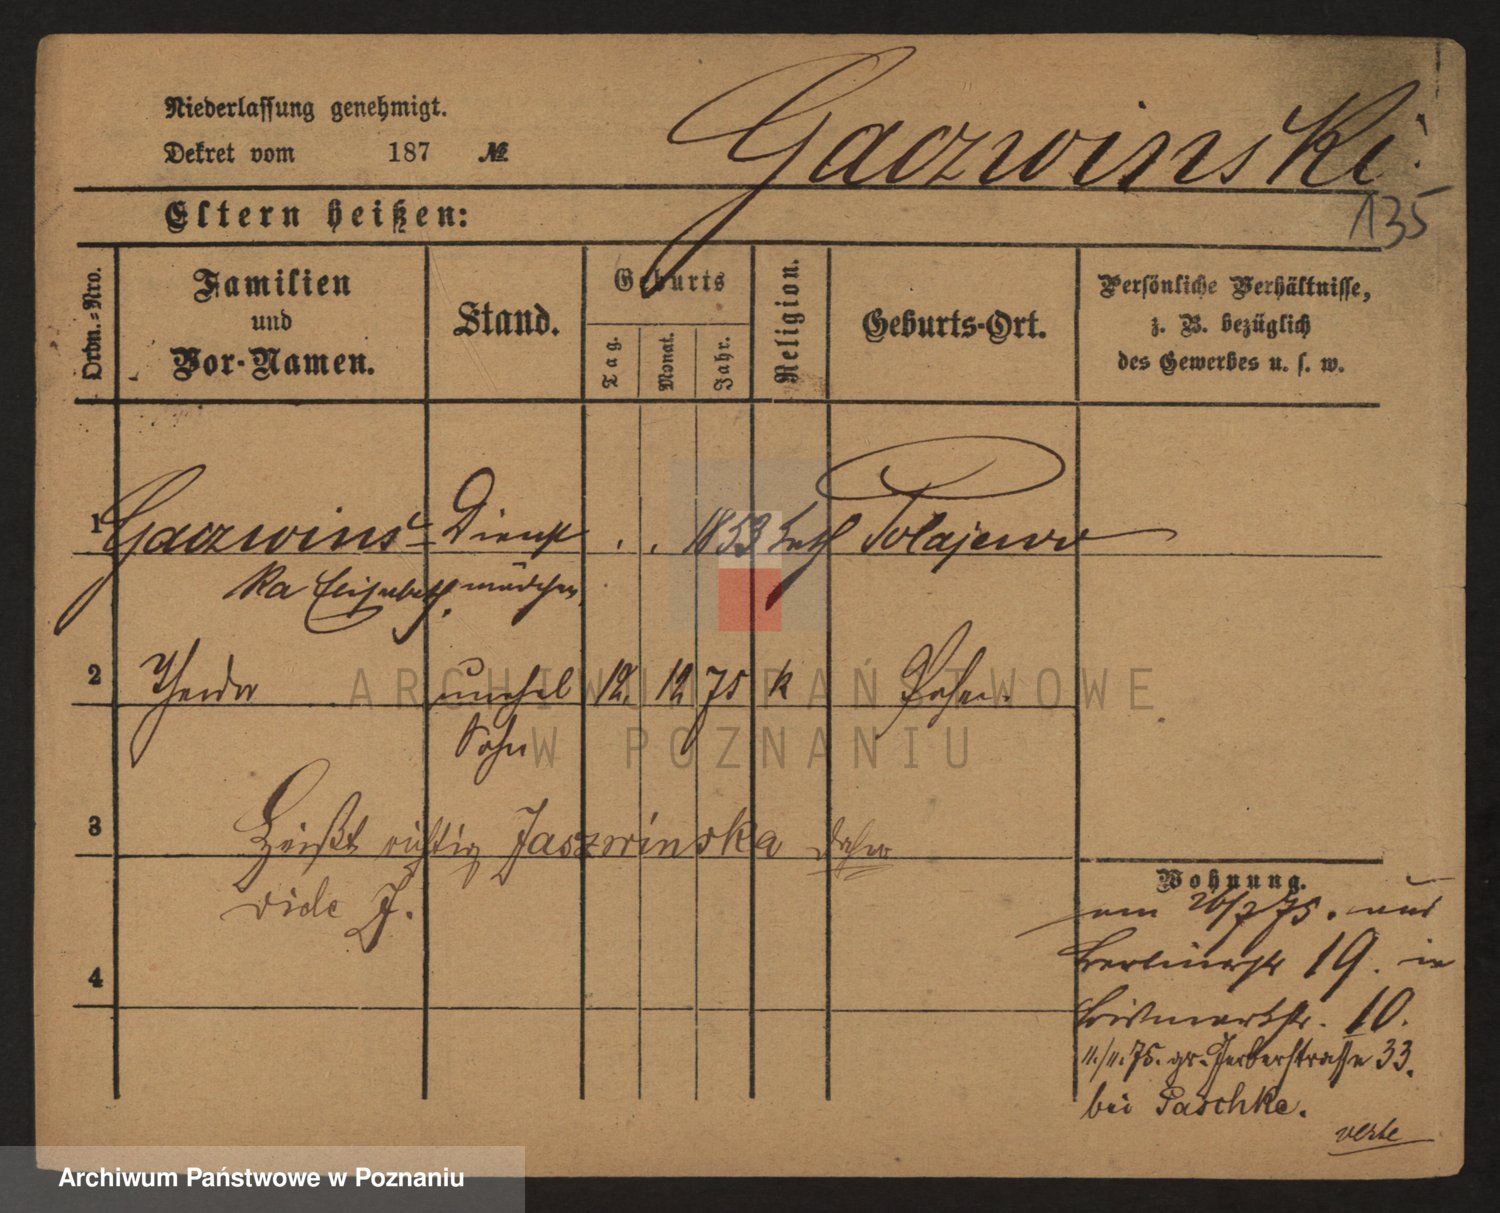 Niederlassung genehmigt.
Dekret vom 187 №
Gaczwinski
135
Eltern heißen:
Ordn.-Nro.
Familien
und
Vor-Namen.
Stand.
Geburts
Tag.
Monat.
Jahr.
Religion.
Geburts-Ort.
Persönliche Verhältnisse,
z. B. bezüglich
des Gewerbes u. s. w.
1 Gaczwins- Dienst . . 1853 kath Polajewo
ka Elisabeth. mädchen
2 unehel 12. 12 75 k Posen.
Sohn
ARCHIWUM PAŃSTWOWE
W POZNANIU
3 Heißt richtig Jaszwinska daher
vide J.
4
Wohnung.
am 26/7 75. aus
Berlinerstr 19. in
Bismarckstr. 10.
11./11.75. gr. Gerberstrasse 33.
bei Paschke.
verte
Archiwum Państwowe w Poznaniu